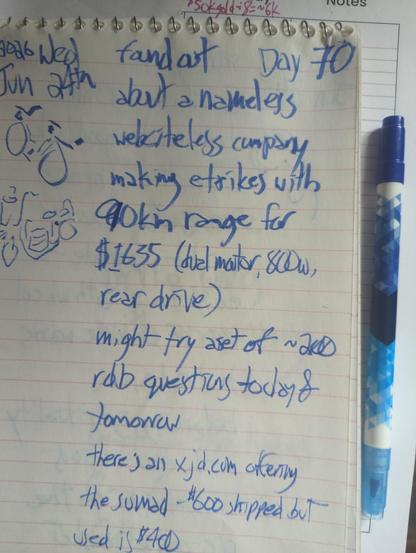 Notes
2026 Wed
Jun 24th
found out Day 70
about a nameless
websiteless company
making etrikes with
90km range for
$1635 (dual motor, 800w,
rear drive)
might try a set of ~200
rdb questions today &
tomorrow
there's an xjd.com offering
the ~$600 shipped but
used is $400